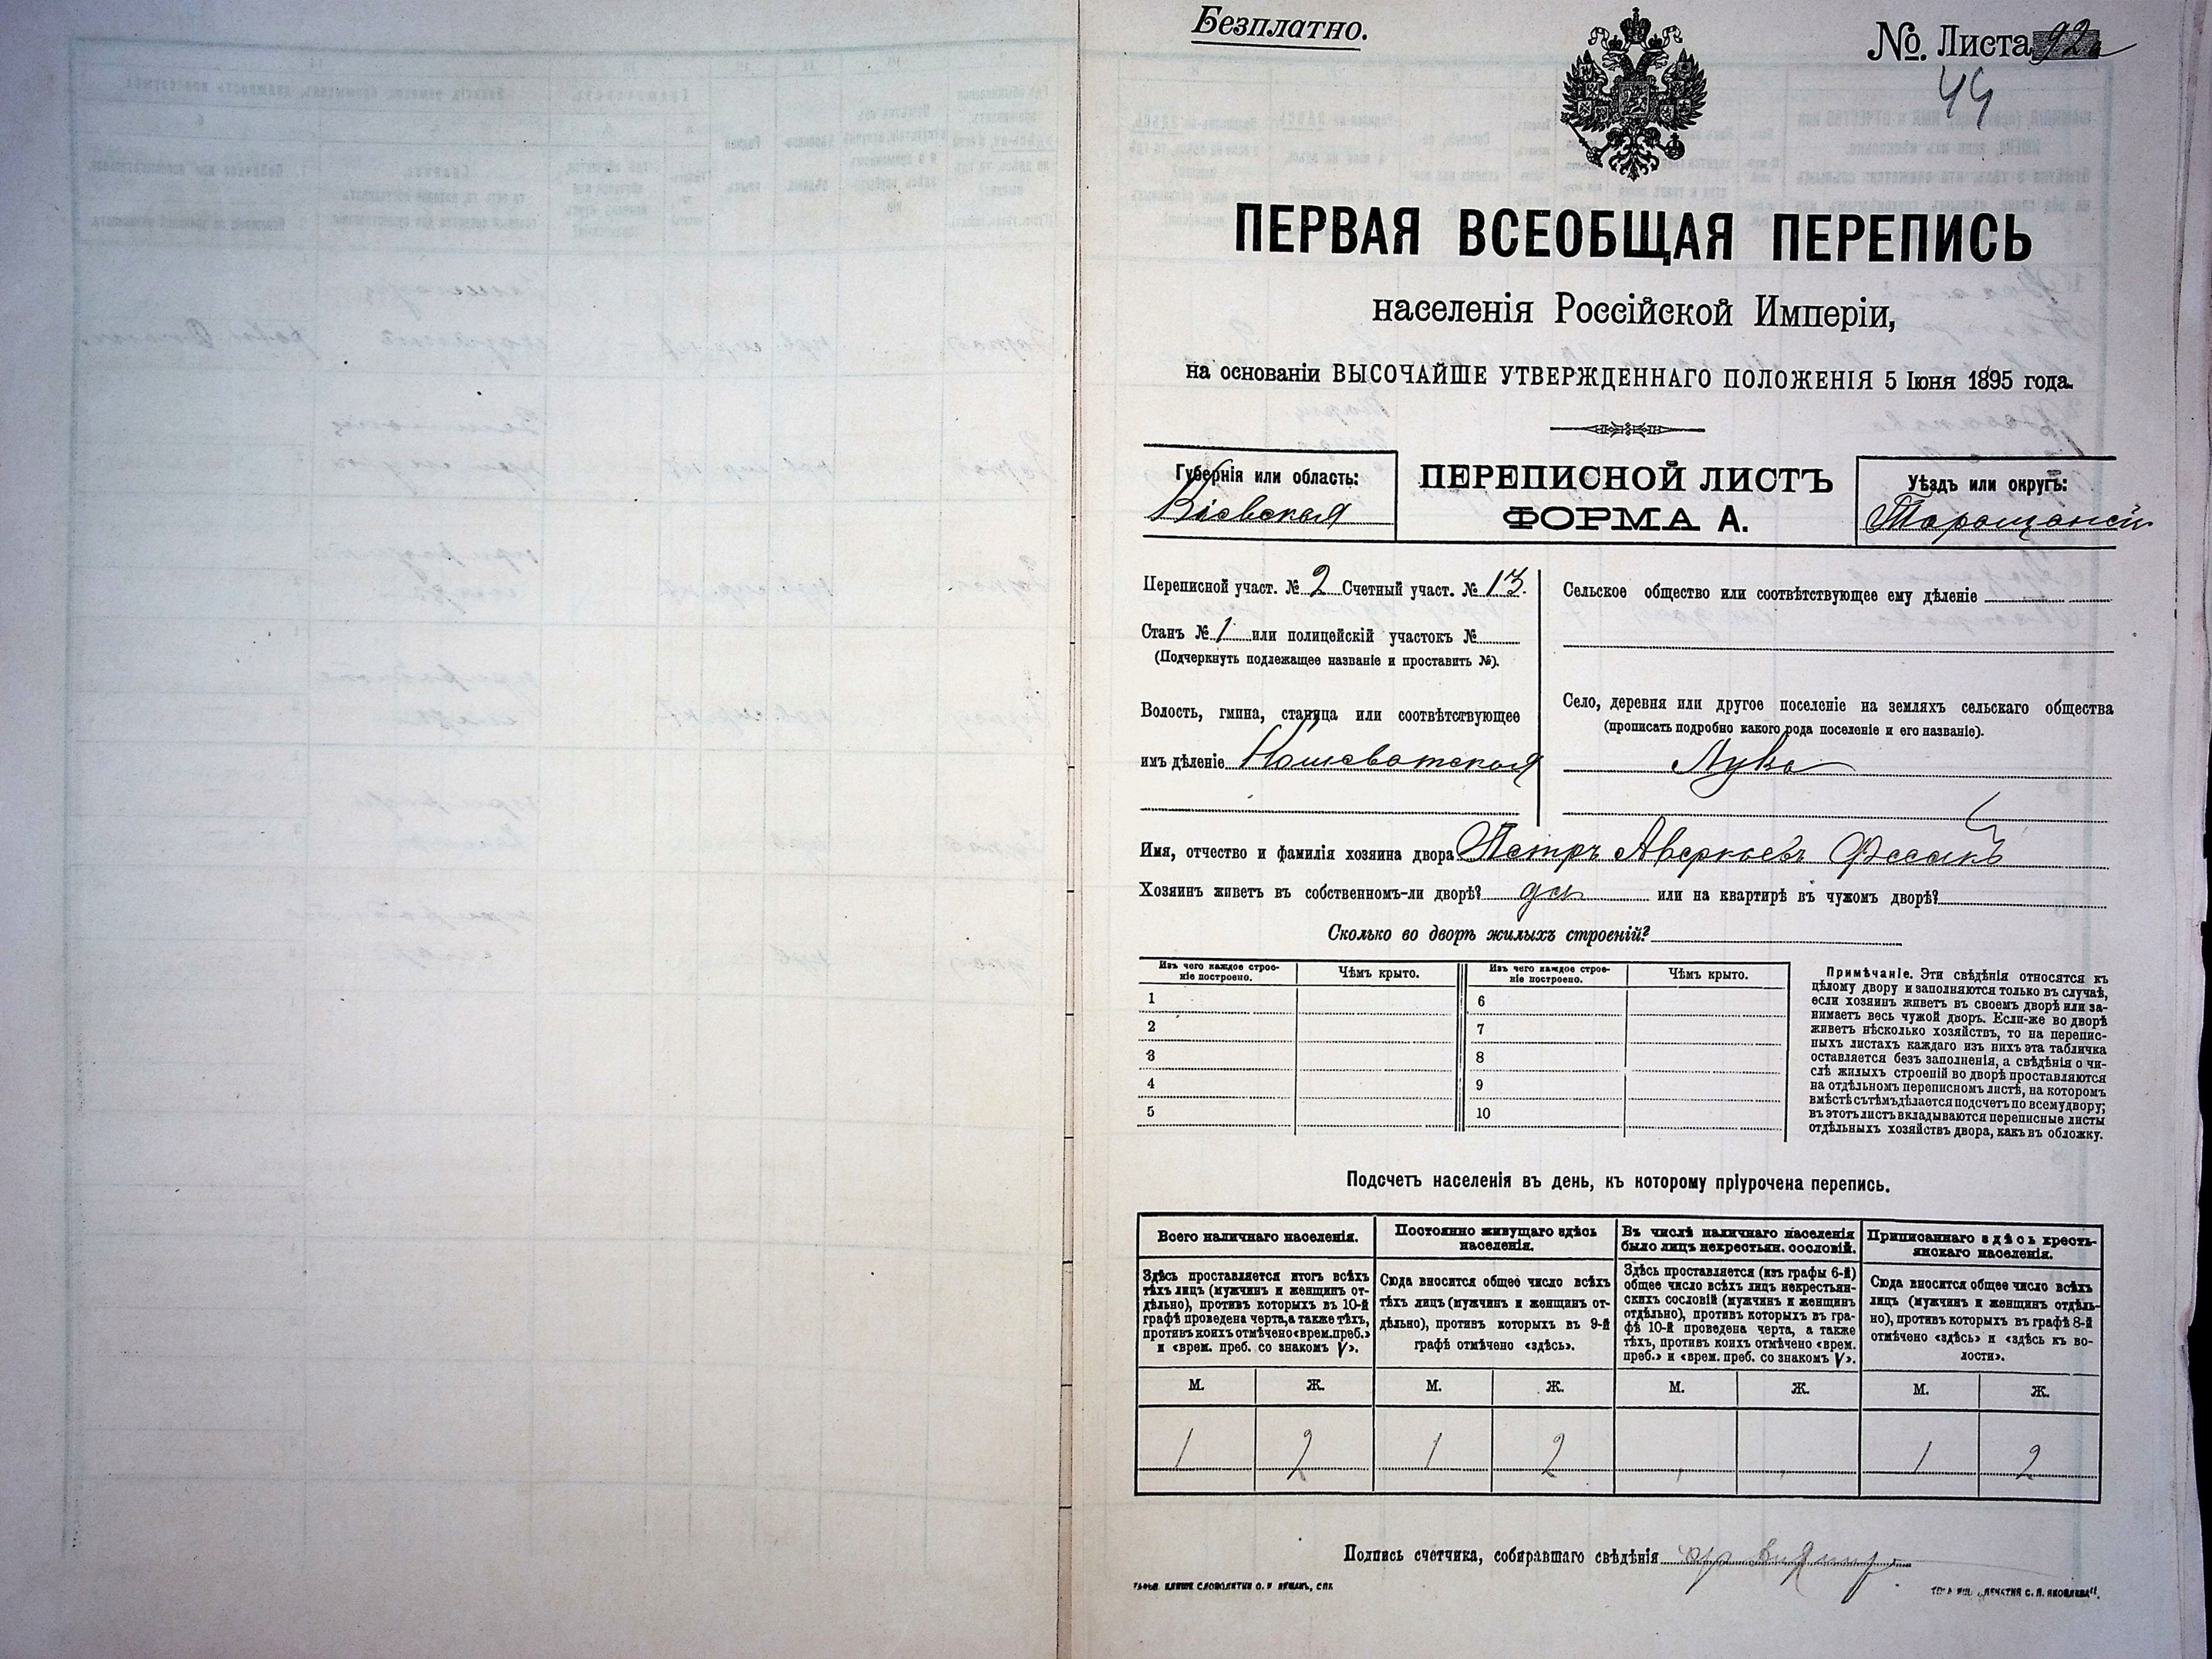 Безплатно.
№ Листа 92
44
ПЕРВАЯ ВСЕОБЩАЯ ПЕРЕПИСЬ
населенія Россійской Имперіи,
на основаніи ВЫСОЧАЙШЕ УТВЕРЖДЕННАГО ПОЛОЖЕНІЯ 5 Іюня 1895 года.
Губернія или область:
Кіевская
ПЕРЕПИСНОЙ ЛИСТЪ
ФОРМА А.
Уѣздъ или округъ:
Таращанскій
Переписной участ. № 2 Счетный участ. № 13.
Станъ № 1 или полицейскій участокъ №
(Подчеркнуть подлежащее названіе и проставить №).
Волость, гмина, станица или соотвѣтствующее
имъ дѣленіе Кошеватская
Сельское общество или соотвѣтствующее ему дѣленіе
Село, деревня или другое поселеніе на земляхъ сельскаго общества
(прописать подробно какого рода поселеніе и его названіе).
Лука
Имя, отчество и фамилія хозяина двора Петръ Аверкіевъ
Хозяинъ живетъ въ собственномъ-ли дворѣ? да или на квартирѣ въ чужомъ дворѣ?
Сколько во дворѣ жилыхъ строеній?
Изъ чего каждое строе-
ніе построено.
Чѣмъ крыто.
Изъ чего каждое строе-
ніе построено.
Чѣмъ крыто.
1 6
2 7
3 8
4 9
5 10
Примѣчаніе. Эти свѣдѣнія относятся къ
цѣлому двору и заполняются только въ случаѣ,
если хозяинъ живетъ въ своемъ дворѣ или за-
нимаетъ весь чужой дворъ. Если-же во дворѣ
живетъ нѣсколько хозяйствъ, то на перепис-
ныхъ листахъ каждаго изъ нихъ эта табличка
оставляется безъ заполненія, а свѣдѣнія о чи-
слѣ жилыхъ строеній во дворѣ проставляются
на отдѣльномъ переписномъ листѣ, на которомъ
вмѣстѣ съ тѣмъ дѣлается подсчетъ по всему двору;
въ этотъ листъ вкладываются переписные листы
отдѣльныхъ хозяйствъ двора, какъ въ обложку.
Подсчетъ населенія въ день, къ которому пріурочена перепись.
Всего наличнаго населенія.
Здѣсь проставляется итогъ всѣхъ
тѣхъ лицъ (мужчинъ и женщинъ от-
дѣльно), противъ которыхъ въ 10-й
графѣ проведена черта, а также тѣхъ,
противъ коихъ отмѣчено «врем. преб.»
и «врем. преб. со знакомъ V».
Постоянно живущаго здѣсь
населенія.
Сюда вносится общее число всѣхъ
тѣхъ лицъ (мужчинъ и женщинъ от-
дѣльно), противъ которыхъ въ 9-й
графѣ отмѣчено «здѣсь».
Въ числѣ наличнаго населенія
было лицъ некрестьян. сословій.
Здѣсь проставляется (изъ графы 6-й)
общее число всѣхъ лицъ некрестьян-
скихъ сословій (мужчинъ и женщинъ
отдѣльно), противъ которыхъ въ гра-
фѣ 10-й проведена черта, а также
тѣхъ, противъ коихъ отмѣчено «врем.
преб.» и «врем. преб. со знакомъ V».
Приписаннаго здѣсь кресть-
янскаго населенія.
Сюда вносится общее число всѣхъ
лицъ (мужчинъ и женщинъ отдѣль-
но), противъ которыхъ въ графѣ 8-й
отмѣчено «здѣсь» и «здѣсь къ во-
лости».
М. Ж. М. Ж. М. Ж. М. Ж.
1 2 1 2 1 2
Подпись счетчика, собиравшаго свѣдѣнія